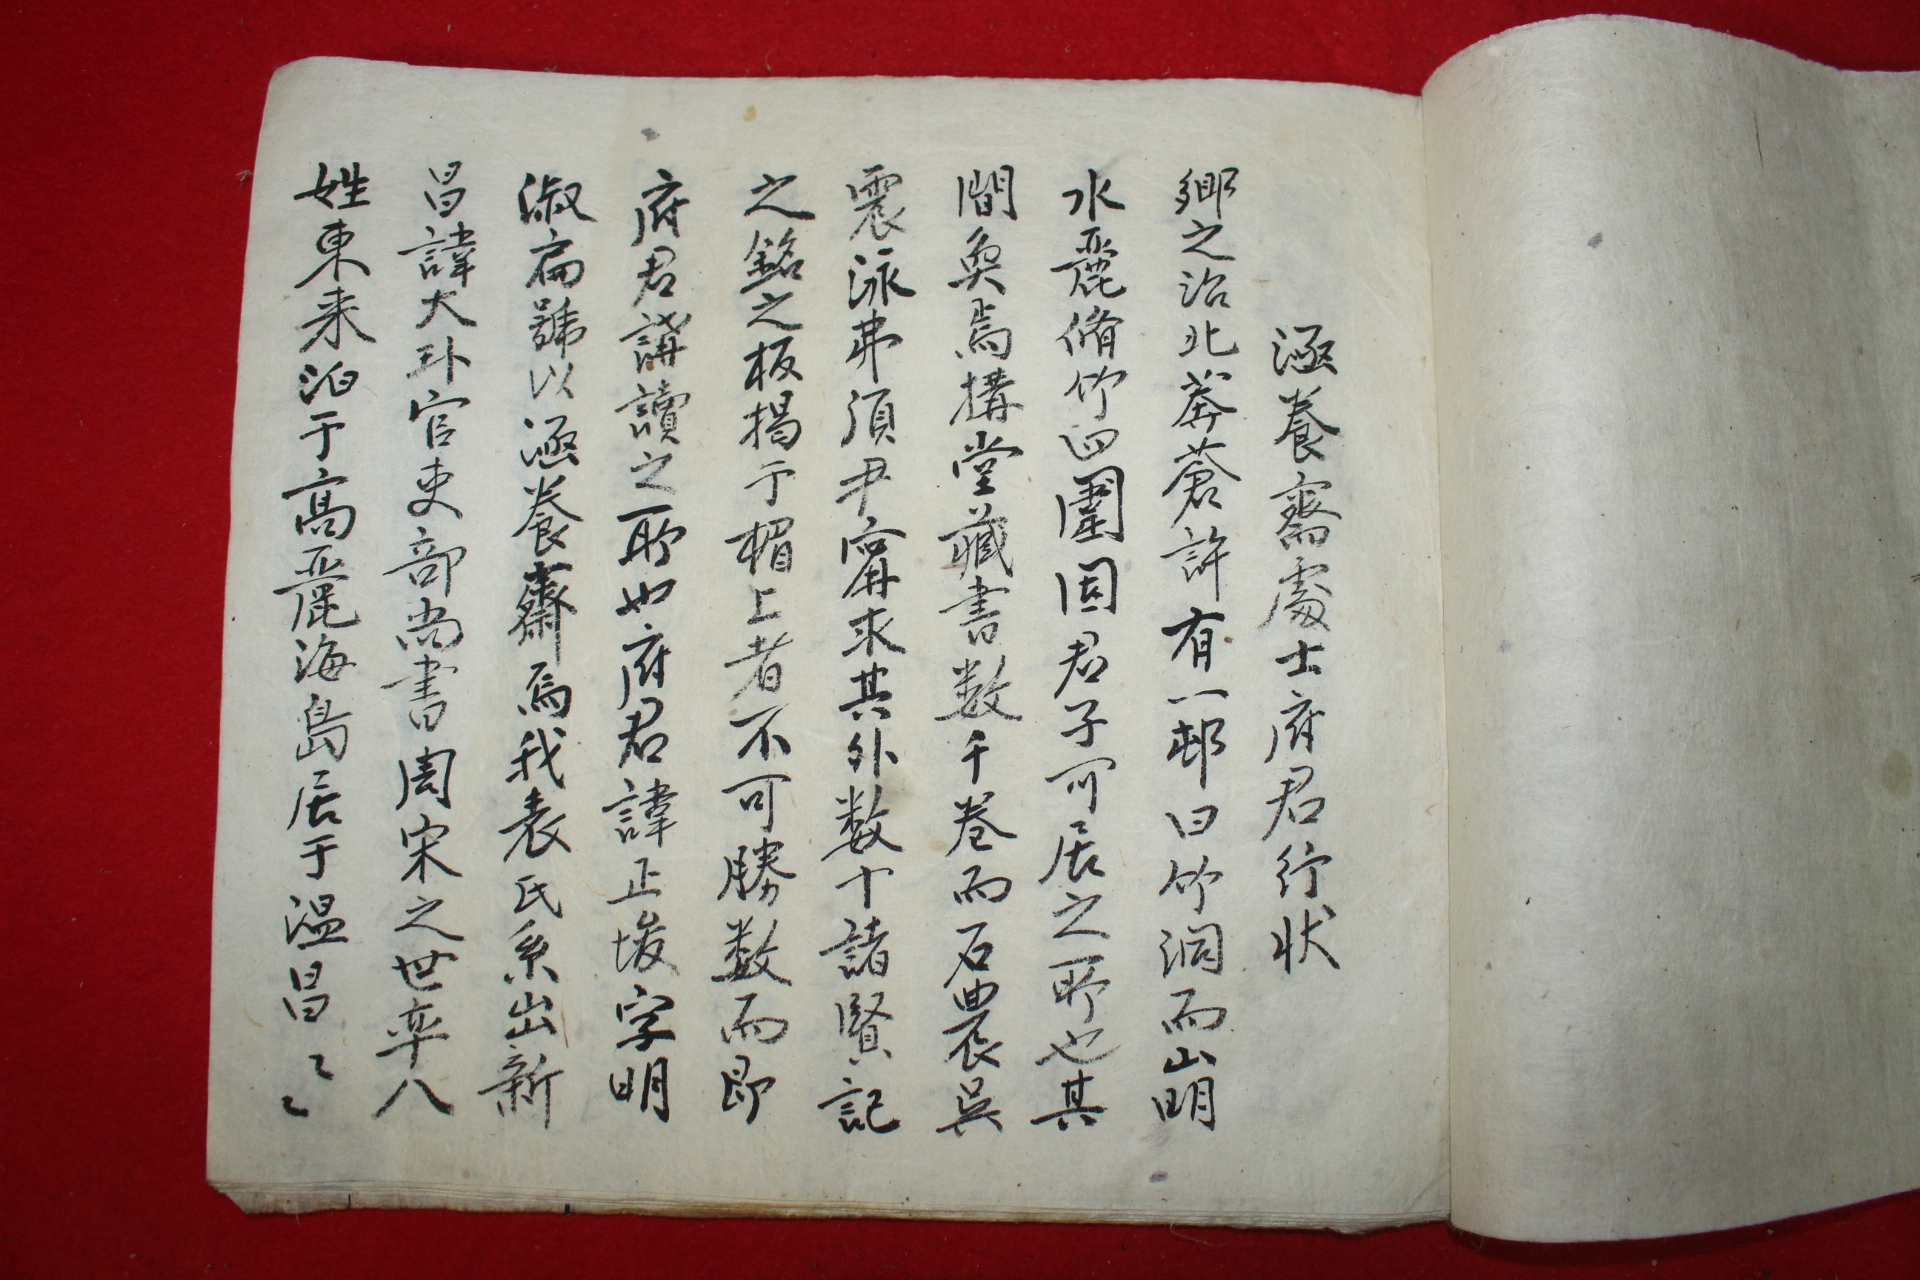 涵養齋處士府君行狀
鄉之治北莽蒼許有一邨曰竹洞而山明
水麗脩竹四圍固君子可居之所也其
間奐焉構堂藏書数千卷而石農吳
震泳弗須尹甯求其外数十諸賢記
之銘之板揭于楣上者不可勝数而即
府君講讀之所也府君諱正埈字明
淑扁號以涵養齋焉我表氏系出新
昌諱大卟官吏部尚書周宋之世率八
姓東来泊于高麗海島居于溫昌〻〻